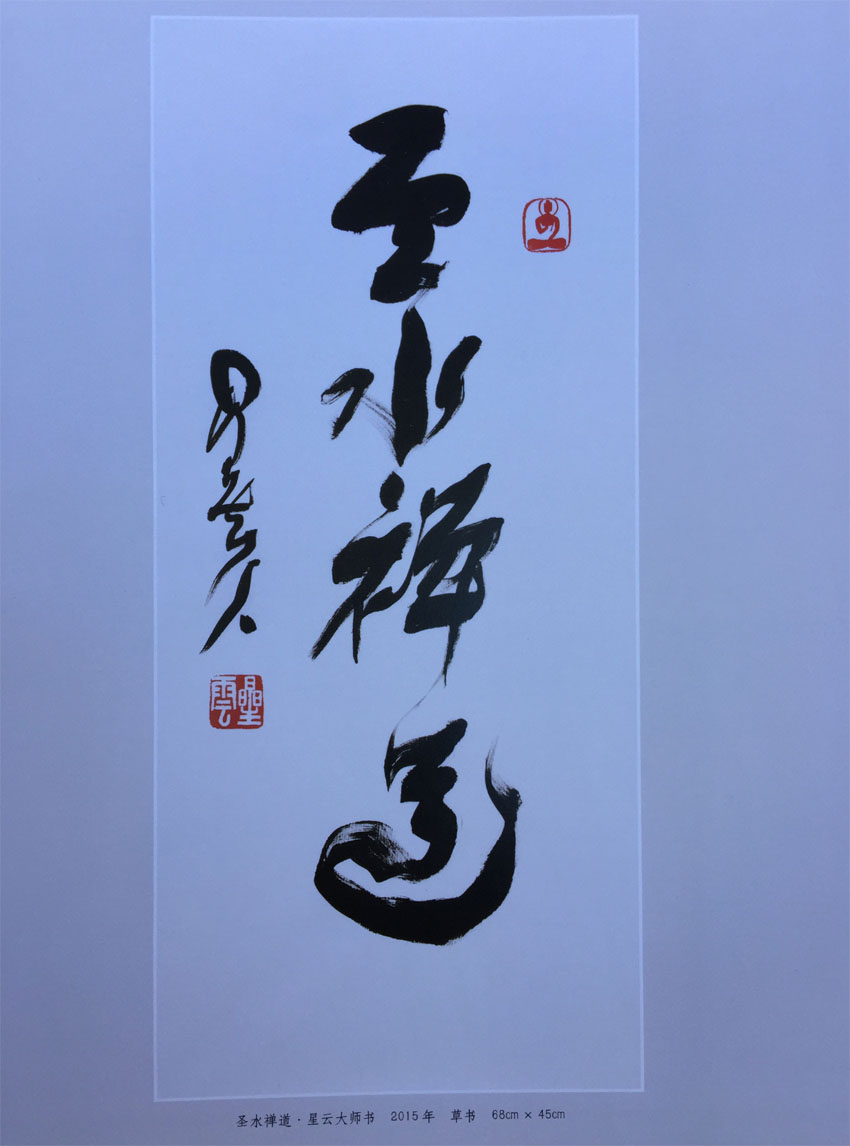 圣水禅道
星云
星雲
圣水禅道·星云大师书 2015年 草书 68cm × 45cm